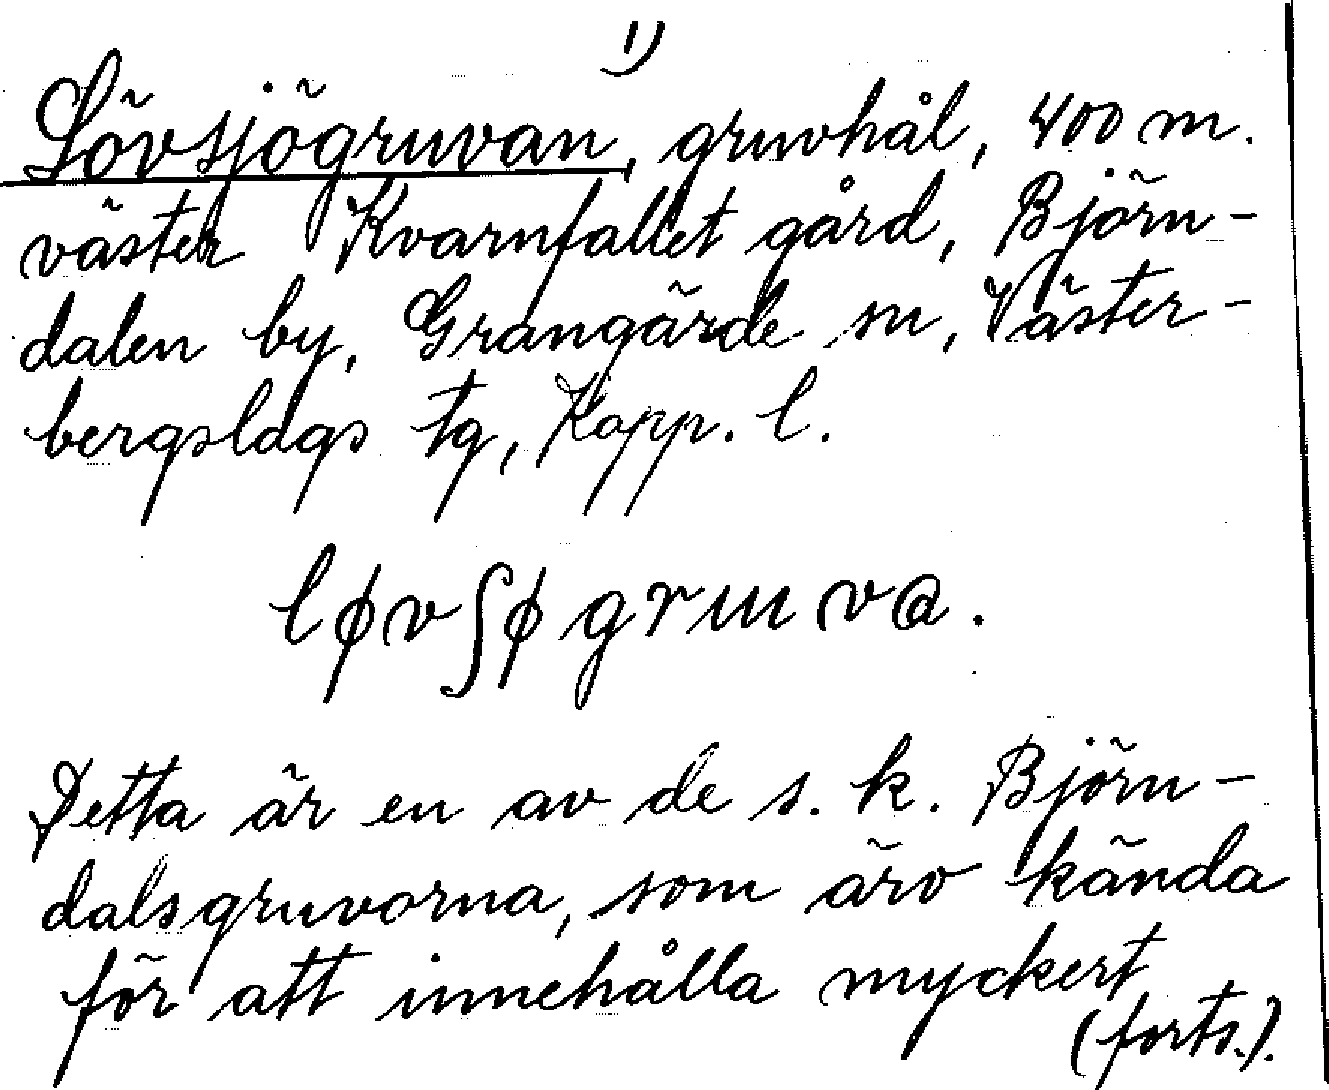 1)
Lövsjögruvan, gruvhål, 400 m.
väster Kvarnfallet gård, Björn-
dalen by, Grangärde sn, Väster-
bergslags tg, Kopp. l.
lφvʃφgruva.
Detta är en av de s. k. Björn-
dalsgruvorna, som äro kända
för att innehålla myckert
(forts.).